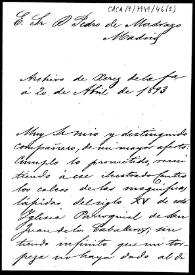 CACA/9/7949/46(2)
E. Sr. D. Pedro de Madrazo
Madrid
Archivo de Xerez de la fra
á 20 de Abril de 1893
Muy Sr mio y distinguido
compañero, de mi mayor afecto:
Cumplo lo prometido, remi
tiendo á ese ilustrado Centro
los calcos de las magnificas
lápidas, del siglo XV de esta
Iglesia Parroquial de San
Juan de los Caballeros; sin
tiendo infinito que mi tor
peza no haya dado al